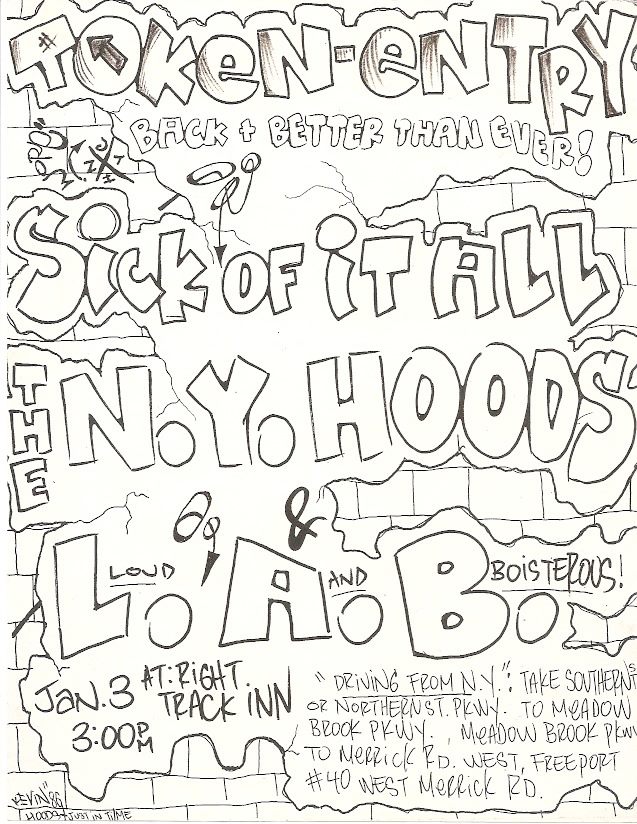 TOKEN-ENTRY
BACK + BETTER THAN EVER!
SICK OF IT ALL
THE N.Y. HOODS
&
L.A.B.
LOUD AND BOISTEROUS!
JAN. 3 AT: RIGHT TRACK INN
3:00 PM
"DRIVING FROM N.Y.": TAKE SOUTHERN ST.
OR NORTHERN ST. PKWY. TO MEADOW
BROOK PKWY., MEADOW BROOK PKWY
TO MERRICK RD. WEST, FREEPORT
#40 WEST MERRICK RD.
KEVIN" 86
HOODS + JUST IN TIME